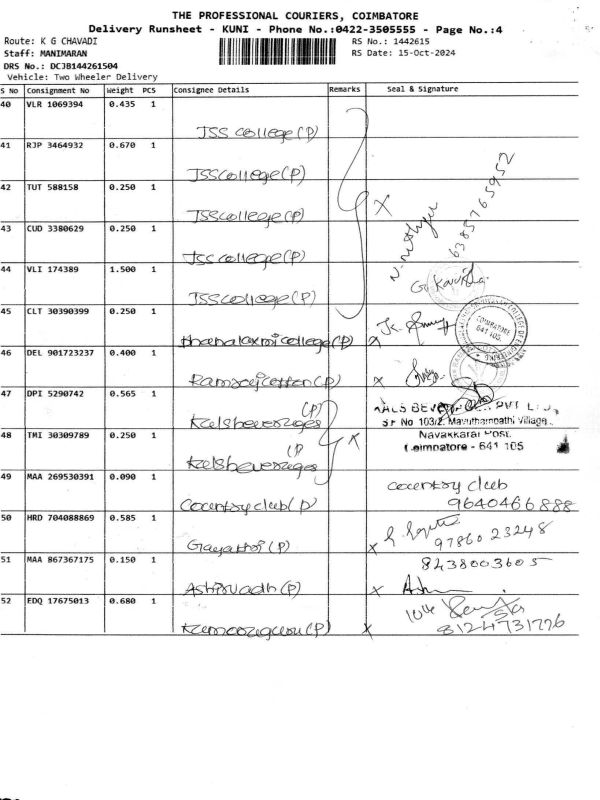 THE PROFESSIONAL COURIERS, COIMBATORE
Delivery Runsheet - KUNI - Phone No.:0422-3505555 - Page No.:4
Route: K G CHAVADI
RS No.: 1442615
Staff: MANIMARAN
RS Date: 15-Oct-2024
DRS No.: DCJB144261504
Vehicle: Two Wheeler Delivery
S No Consignment No Weight PCS Consignee Details Remarks Seal & Signature
40 VLR 1069394 0.435 1
JSS College (P)
41 RJP 3464932 0.670 1
JSS College (P)
42 TUT 588158 0.250 1
JSS College (P)
X
6385765952
43 CUD 3380629 0.250 1
JSS College (P)
44 VLI 174389 1.500 1
JSS College (P)
45 CLT 30390399 0.250 1
thanalaxmi college (P) x
COIMBATORE
641 105.
46 DEL 901723237 0.400 1
Ramraj cotton (P) x
47 DPI 5290742 0.565 1
(P)
Kals beverages
KALS BEVERAGES PVT LTD.,
SF No 103/2. Mavuthampathi Village.
48 TMI 30309789 0.250 1
(P
Kals beverages
x
Navakkarai Post.
Coimbatore - 641 105
49 MAA 269530391 0.090 1
Country club (P)
country club
9640466888
50 HRD 704088869 0.585 1
Gayathri (P) x
9786023248
51 MAA 867367175 0.150 1
8438003605
Ashirvadh (P) x
52 EDQ 17675013 0.680 1
Kumaraguru (P) x
8124731726